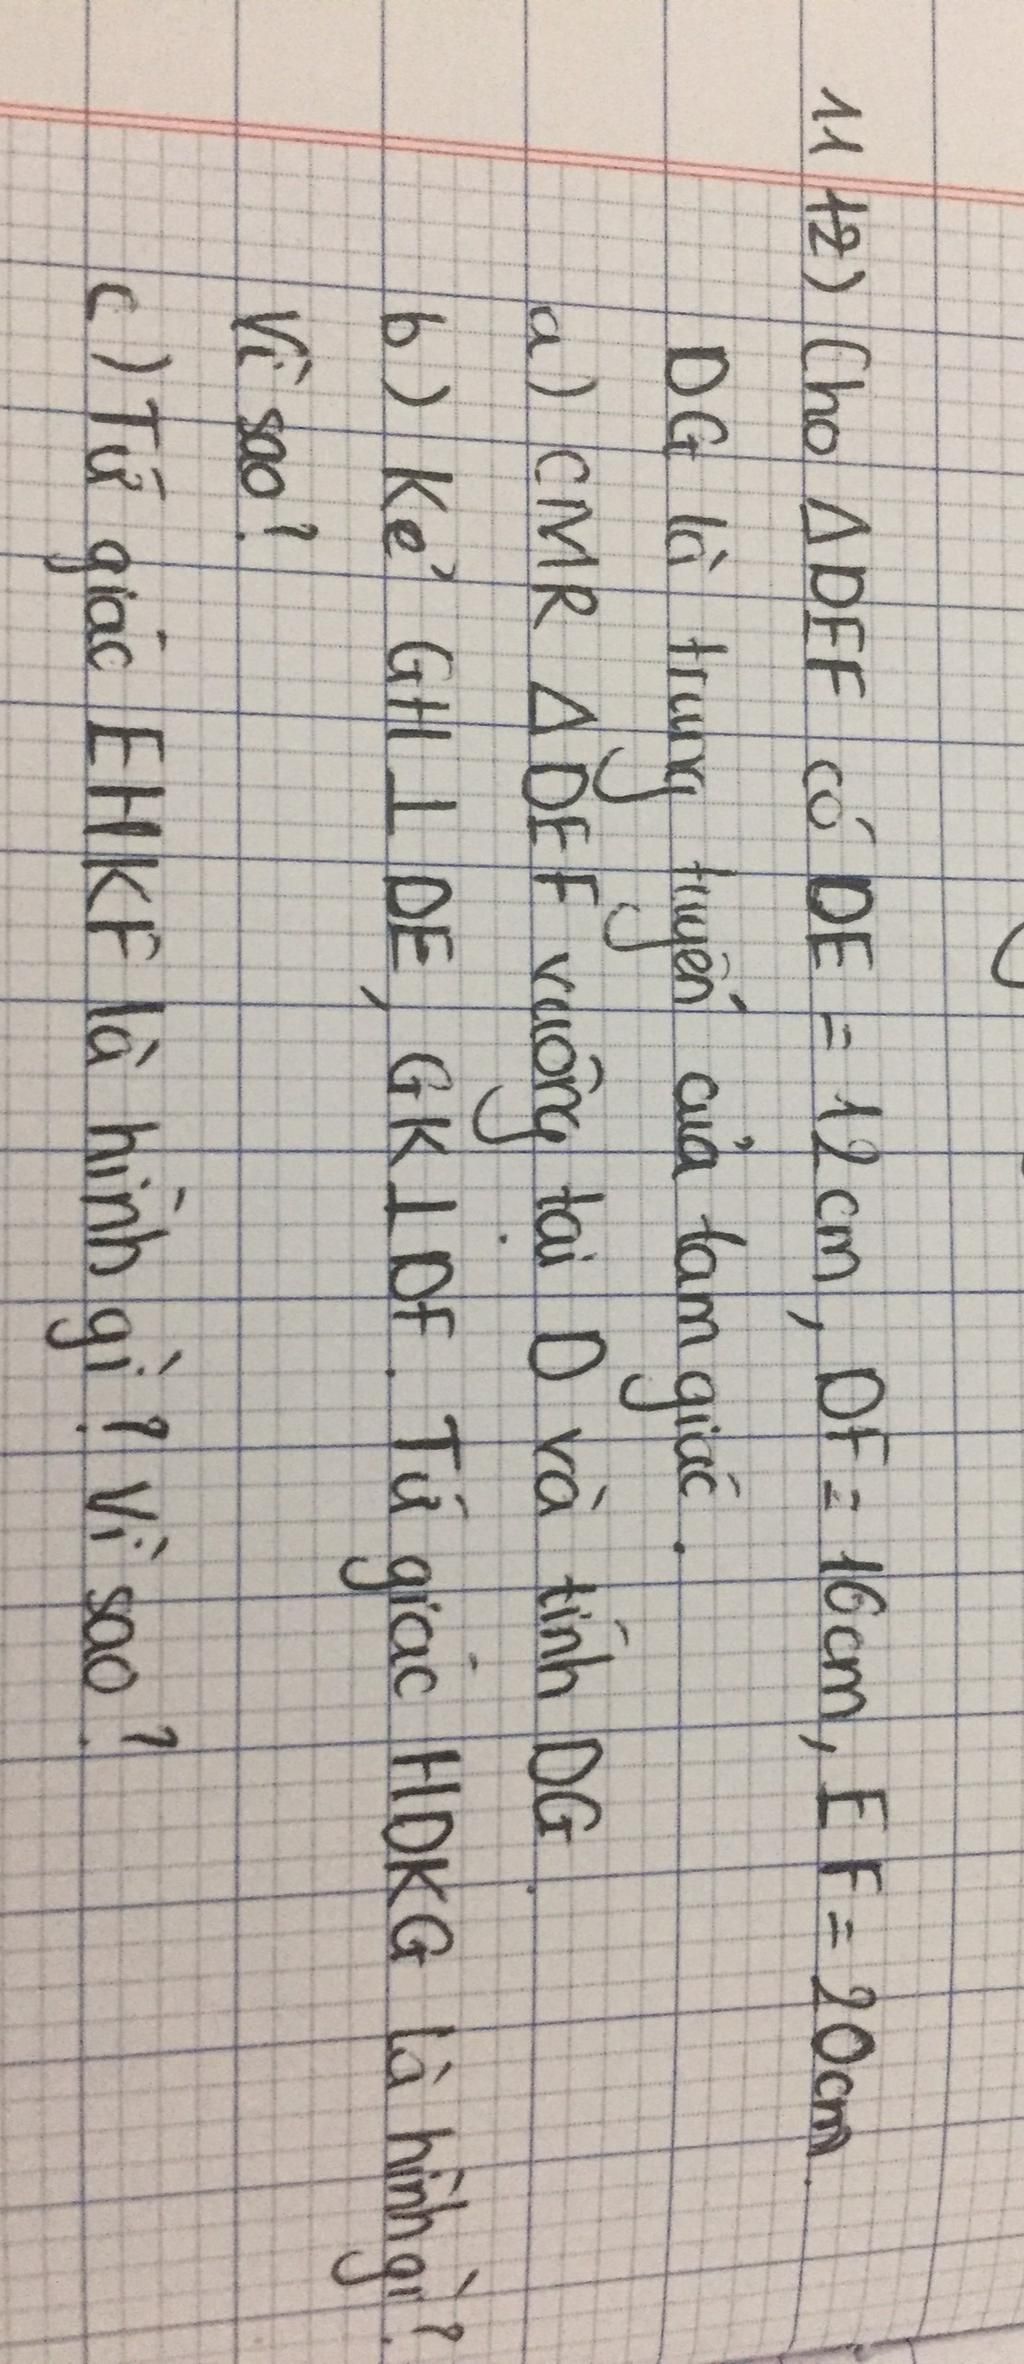 11 12) Cho ΔDEF có DE = 12cm, DF = 16cm, EF = 20cm.
DG là trung tuyến của tam giác.
a) CMR ΔDEF vuông tại D và tính DG.
b) Kẻ GH ⊥ DE, GK ⊥ DF. Tứ giác HDKG là hình gì?
Vì sao?
c) Tứ giác EHKF là hình gì? Vì sao?